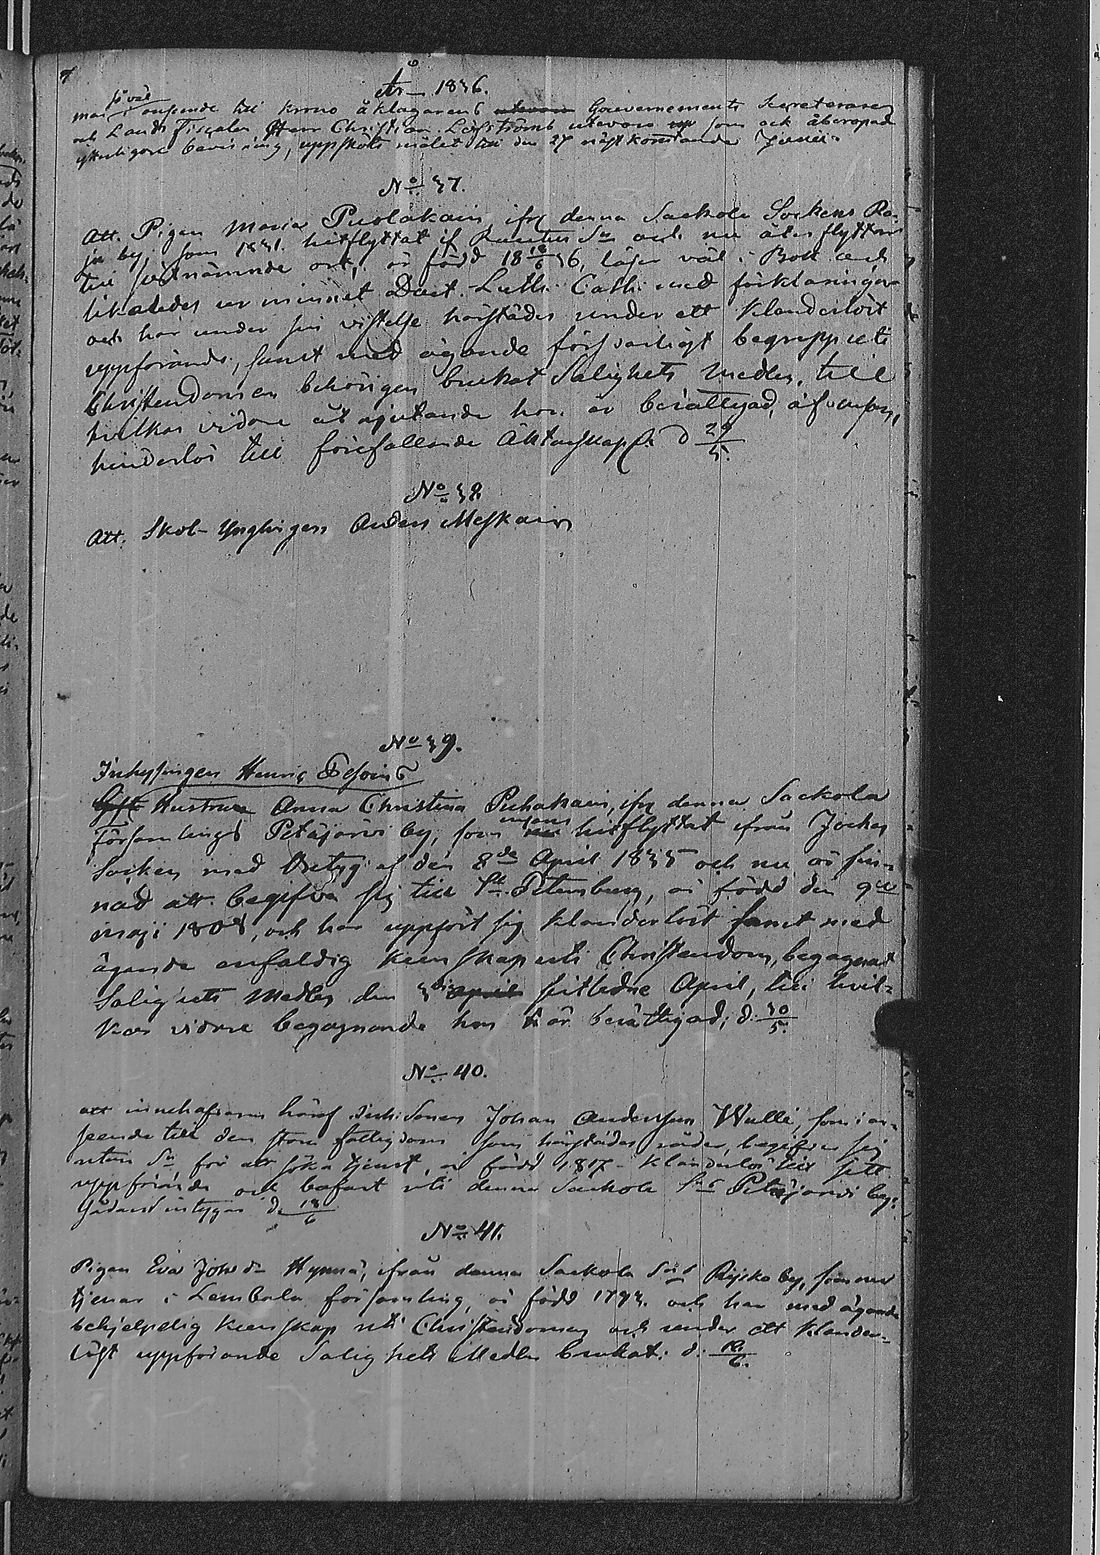 År 1836.
såväl
afseende till krono åklagarens Gouvernements Secreteraren
och Lands Fiscalen Herr Christian Löfströms utevaro som och åberopad
ytterligare bevisning, uppskots målet till den 27 nästkommande Junii.
No 37.
Att. Pigan Maria Puolakain, ifrån denna Sackola Sockens
by, som 1831. hitflyttat if och nu åter flyttar
till sistnämnde ort, är född läser väl i Bok och
likaledes ur minnet Doct. Luth. Cath. med förklaringen
och har under sin vistelse härstädes under ett klanderlöst
uppförande, samt med ägande försvarligt begrepp uti
Christendomen behörigen brukat Salighets Medlen, till
hvilkas vidare åtnjutande hon är berättigad, äfvensom
hinderlös till förefallande Äktenskap. d 29/5.
No 38.
Att. Skol-Ynglingen Anders Meskain
No 39.
Inhysingen Henric
Hustrun Anna Christina Puhakain, ifrån denna Sackola
Församlings Petäjärvi by, som hitflyttat ifrån Jockas
Socken med Betyg af den 8de April 1835 och nu är sin-
nad att begifva sig till St. Petersburg, är född den 9de
maji 1808, och har uppfört sig klanderlöst samt med
ägande enfaldig kunskap uti Christendom, begagnat
Salighets Medlen den sistledne April, till hvil-
kas vidare begagnande hon är berättigad; d. 30/5.
No 40.
att innehafvaren häraf Johan Andersson Wulli, som i an-
seende till den stora fattigdom som härstädes råder, begifver sig
för att söka tjenst, är född 1817 - klanderlös till sitt
uppförande och bofast uti denna Sackola Petäjärvi by,
d 18/6
No 41.
Pigan Eva Johsdr ifrån denna Sackola by, som nu
tjenar i Lembala församling, är född 1793. och har med ägande
behjelpelig kunskap uti Christendomen och under ett klander-
löst uppförande Salighets Medlen brukat. d.